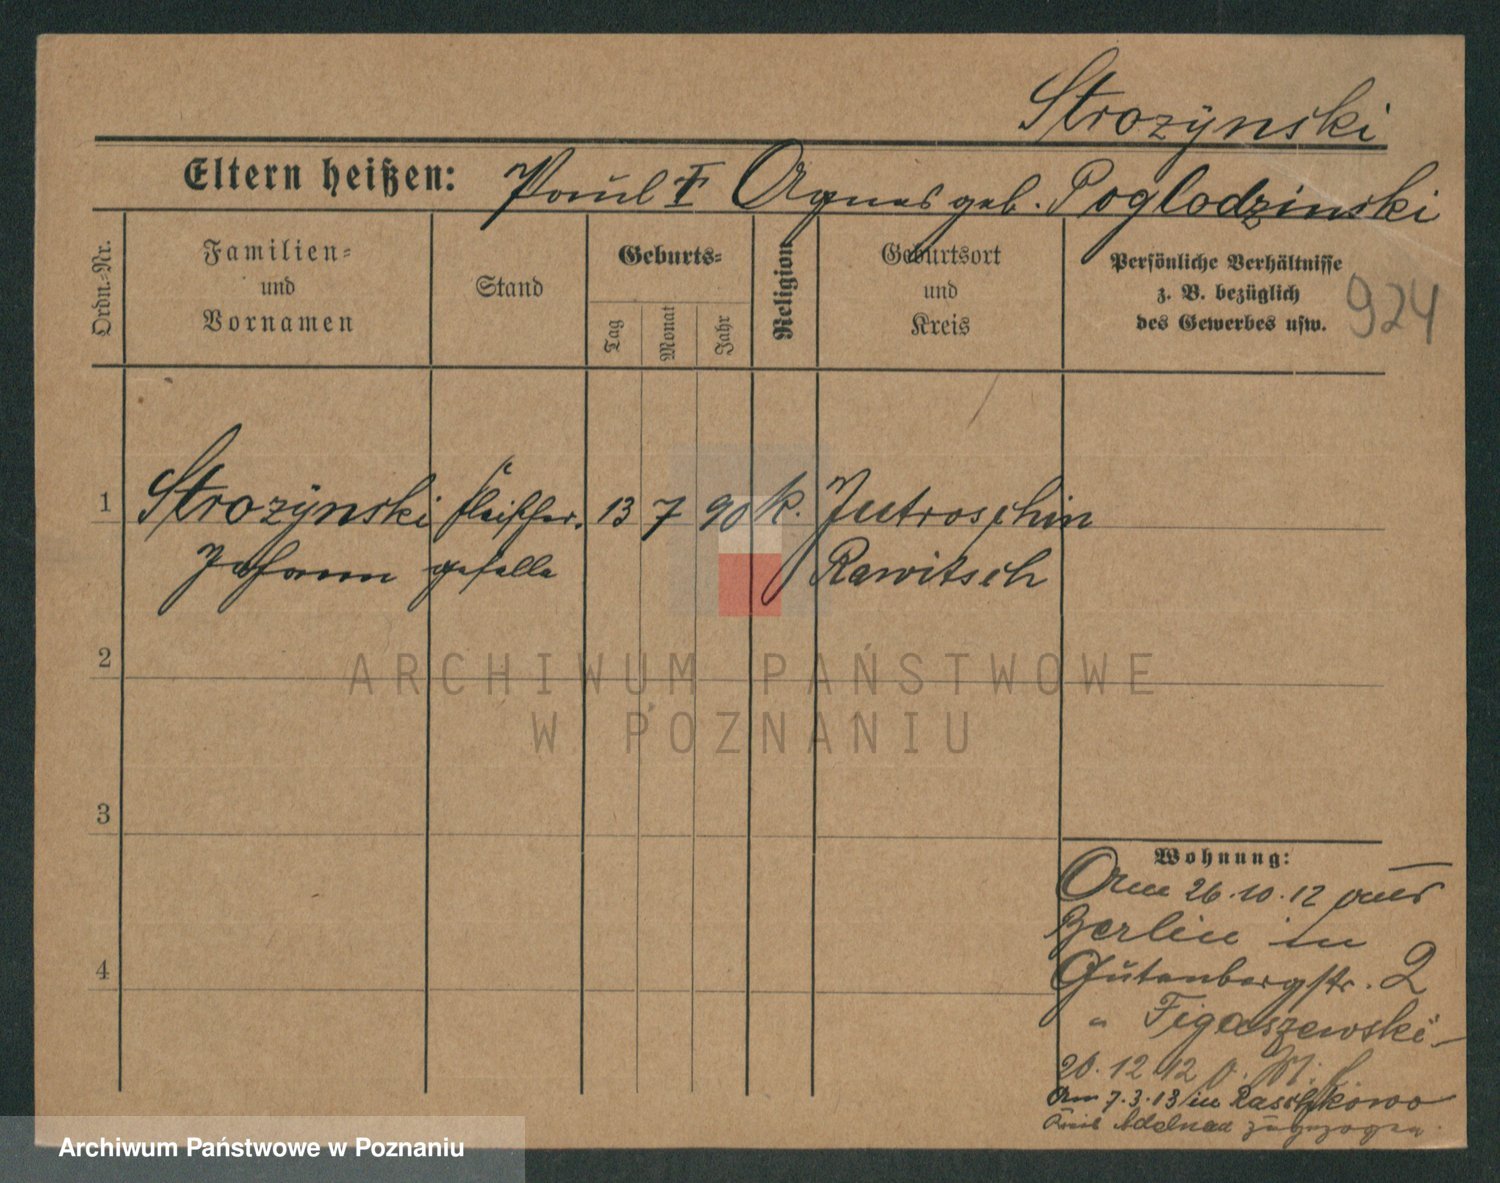 Strozÿnski
Eltern heißen: Paul ☦ Agnes geb. Poglodzinski
Ordn.-Nr.
Familien-
und
Vornamen
Stand
Geburts-
Tag
Monat
Jahr
Religion
Geburtsort
und
Kreis
Persönliche Verhältnisse
z. B. bezüglich
des Gewerbes usw.
924
1 Strozÿnski Fleischer- 13 7 90 k. Jutroschin
Johann geselle Rawitsch
2
3
4
Wohnung:
Am 26.10.12 aus
Berlin in
Gutenbergstr. 2
" Figaszewski
20.12.12
Am 7.3.13 in Raschkowo
Kreis Adelnau zugezogen
ARCHIWUM PAŃSTWOWE
W POZNANIU
Archiwum Państwowe w Poznaniu